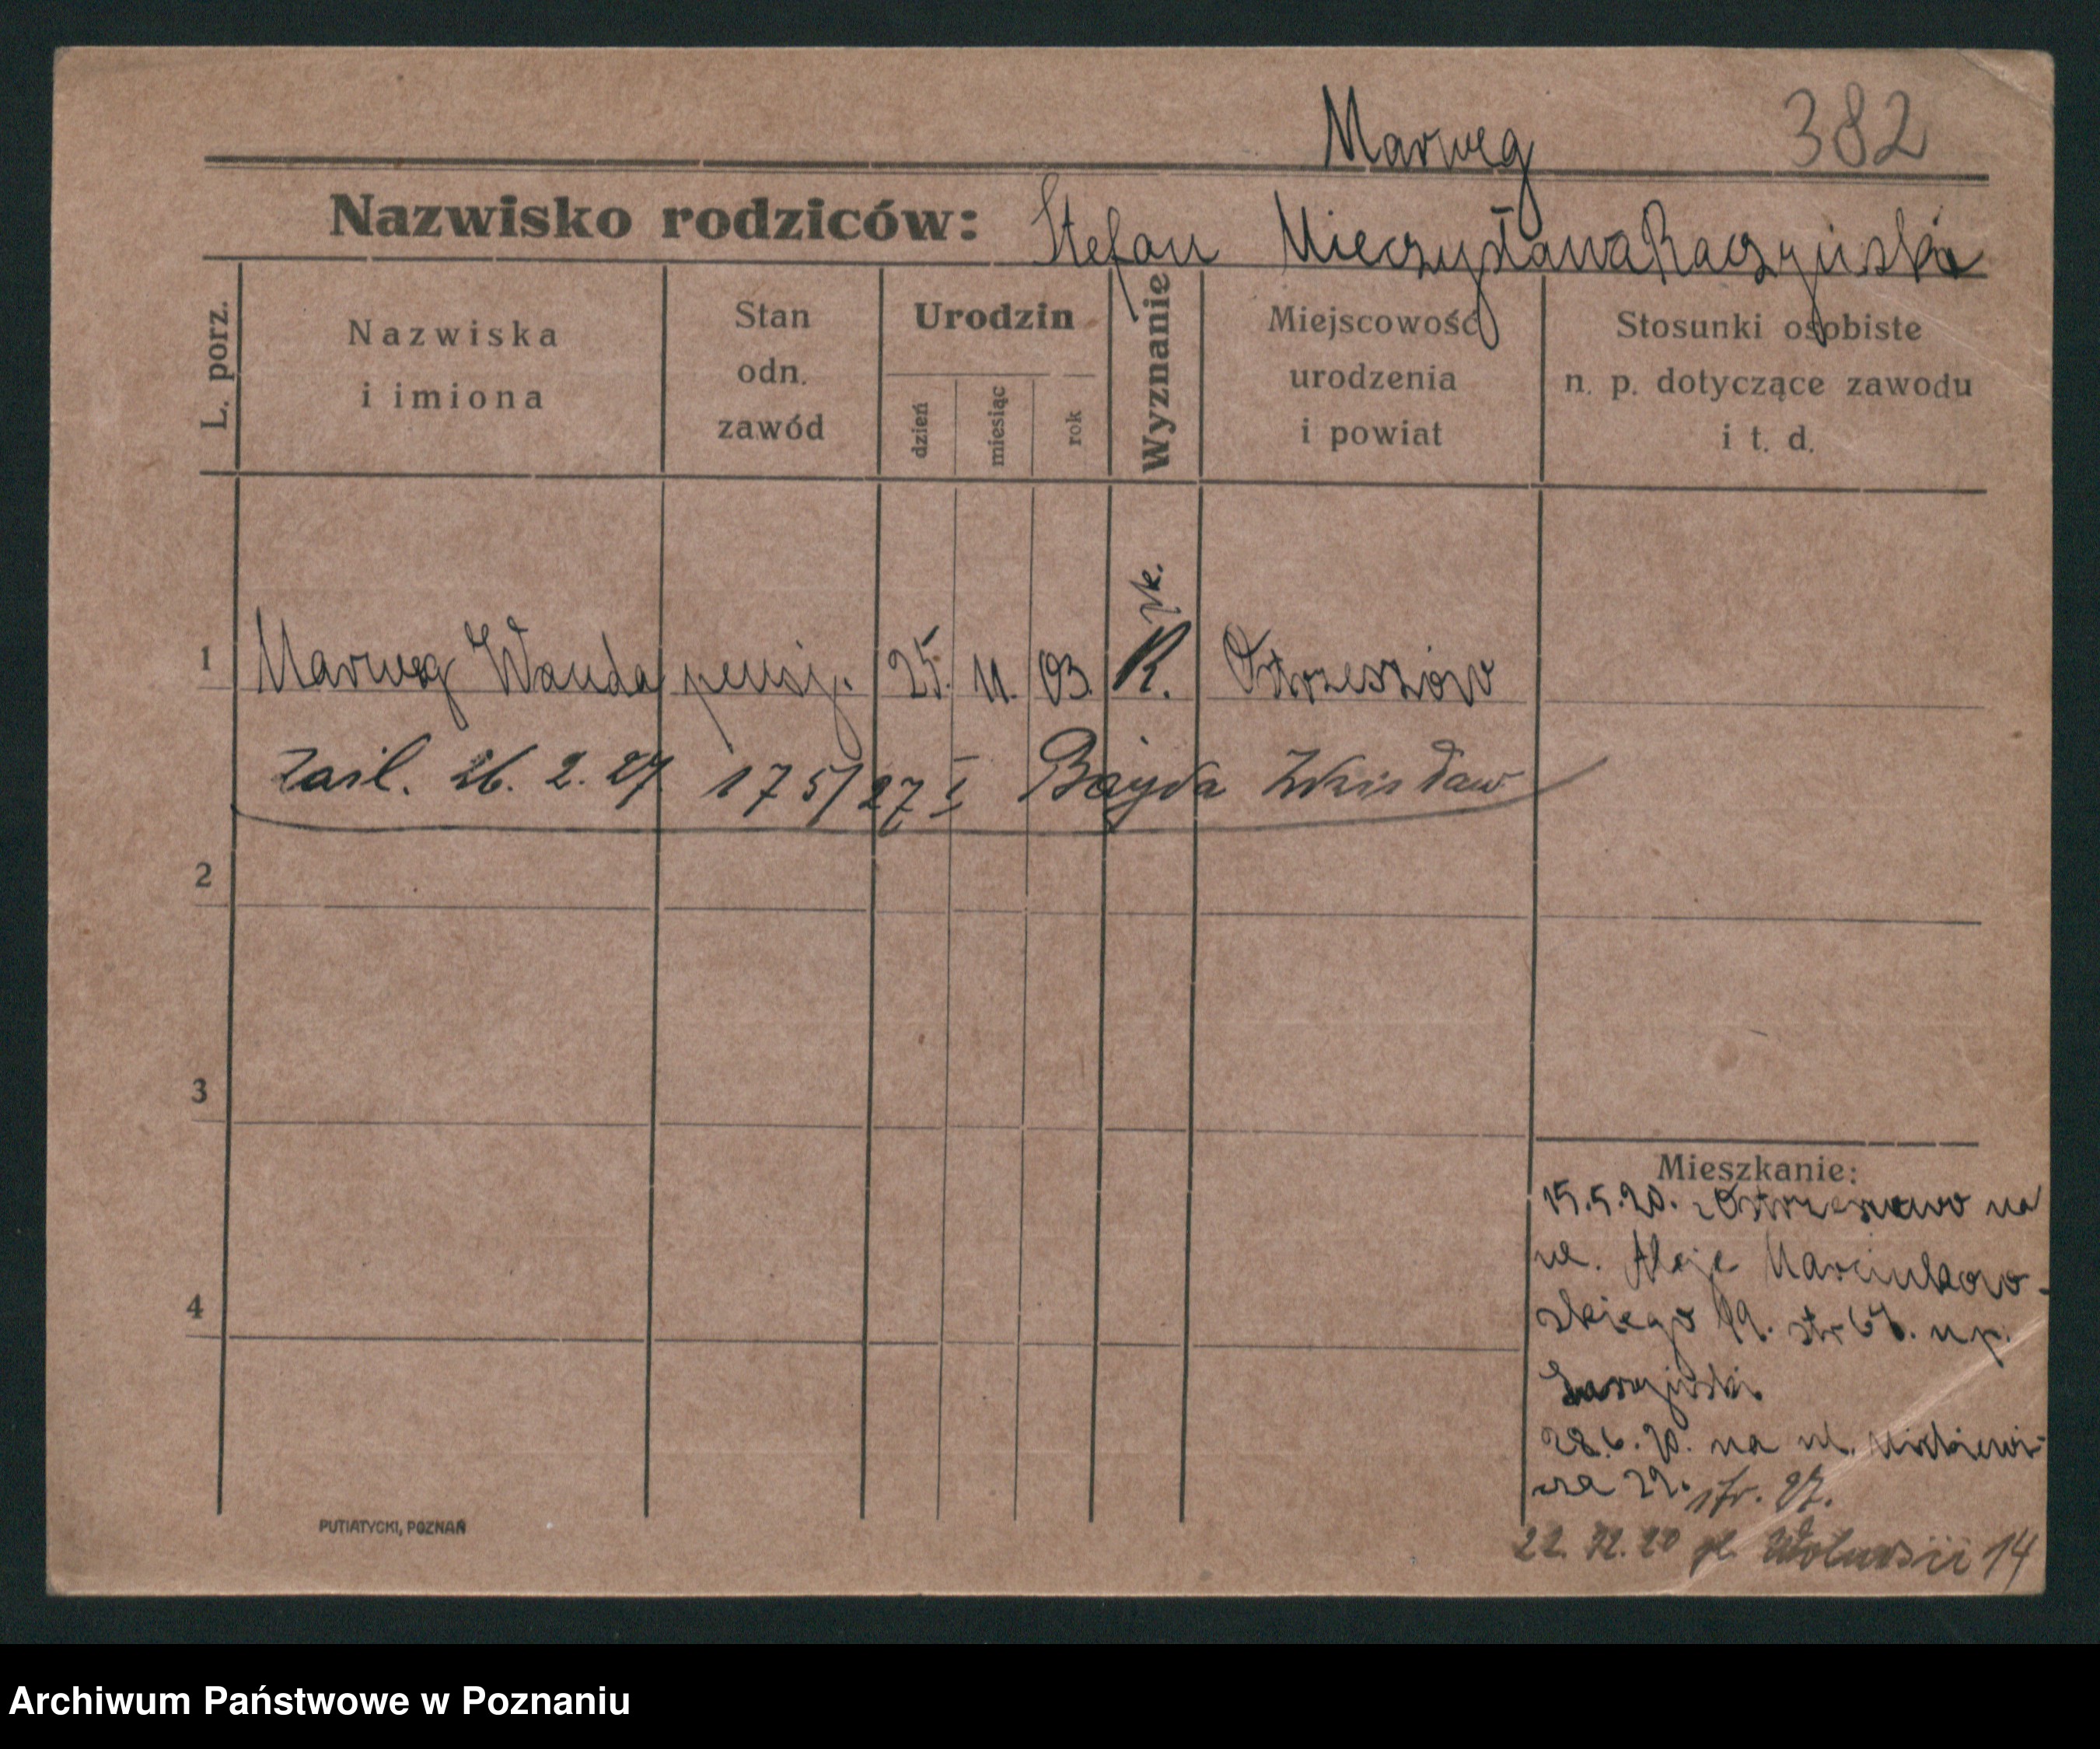 Marweg 382
Nazwisko rodziców: Stefan Mieczysława Raczyńska
L. porz.
Nazwiska
i imiona
Stan
odn.
zawód
Urodzin
dzień
miesiąc
rok
Wyznanie
Miejscowość
urodzenia
i powiat
Stosunki osobiste
n. p. dotyczące zawodu
i t. d.
1 Marweg Wanda pensj. 25. 11. 03. R. k. Ostrzeszów
zaśl. 26. 2. 27 175/27 I Bajda Zdzisław
2
3
4
Mieszkanie:
15.5.20. z Ostrzeszowo na
ul. Aleje Marcinkow-
skiego 19. str 67. u p.
28.6.20. na ul. Mickiewi-
cza 29. str. 27.
22. 12. 20 pl. Wolności 14
PUTIATYCKI, POZNAŃ
Archiwum Państwowe w Poznaniu